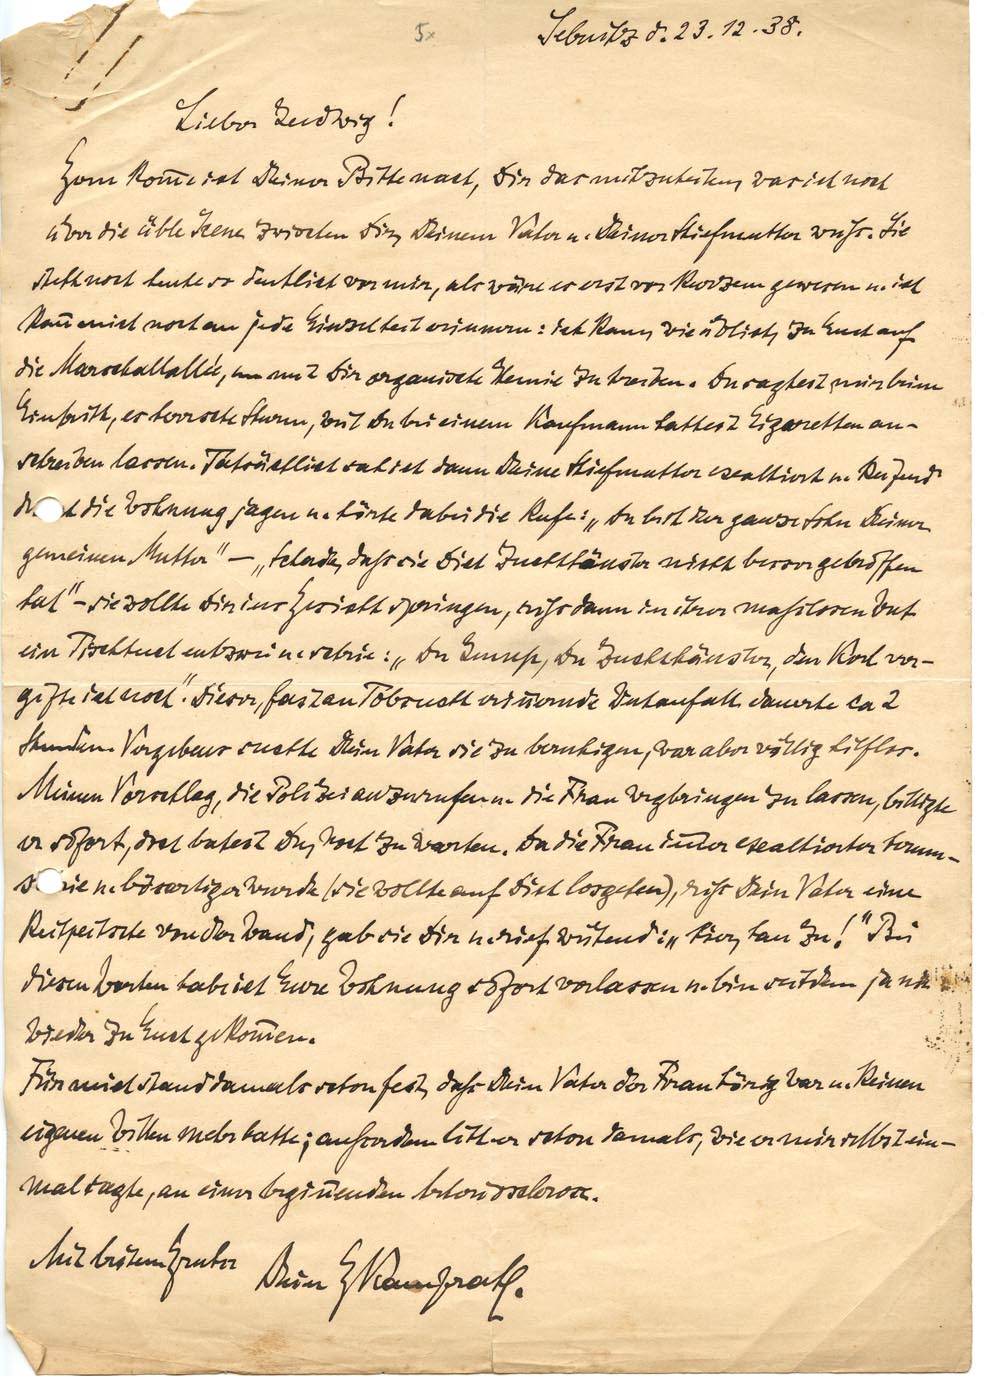 5x
Sebnitz d. 23.12.38.
Lieber Ludwig!
Gern kom̅e ich Deiner Bitte nach, Dir das mitzuteilen, was ich noch
über die üble Scene zwischen Dir, Deinem Vater u. Deiner Stiefmutter weiß. Sie
steht noch heute so deutlich vor mir, als wäre es erst vor Kurzem gewesen u. ich
kan̅ mich noch an jede Einzelheit erinnern: ich kam, wie üblich, zu Euch auf
die Marschallallée, um mit Dir organische Chemie zu treiben. Du sagtest mir beim
Eintritt, es herrsche Sturm, weil Du bei einem Kaufmann hattest Cigaretten an-
schreiben lassen. Tatsächlich sah ich dann Deine Stiefmutter exaltiert u. keifend
durch die Wohnung jagen u. hörte dabei die Rufe: „Du bist der ganze Sohn Deiner
gemeinen Mutter" – „Schade, daß sie Dich Zuchthäusler nicht hervorgebröffen
hat" – sie wollte Dir ins Gesicht springen, riß dann in ihrer maßlosen Wut
ein Tischtuch entzwei u. schrie: „Du Lump, Du Zuchthäusler, den Kerl ver-
gifte ich noch". Dieser, fast an Tobsucht erin̅ernde Wutanfall dauerte ca 2
Stunden. Vergebens suchte Dein Vater sie zu beruhigen, war aber völlig hilflos.
Meinen Vorschlag, die Polizei anzurufen u. die Frau wegbringen zu lassen, billigte
er sofort, doch batest Du, noch zu warten. Da die Frau im̅er exaltierter herum-
schrie u. bösartiger wurde (sie wollte auf Dich losgehen), riß Dein Vater eine
Reitpeitsche von der Wand, gab sie Dir u. rief wütend: „Hier, hau zu!" Bei
diesen Worten habe ich Eure Wohnung sofort verlassen u. bin seitdem ja nie
wieder zu Euch gekom̅en.
Für mich stand damals schon fest, daß Dein Vater der Frau hörig war u. keinen
eigenen Willen mehr hatte; außerdem litt er schon damals, wie er mir selbst ein-
mal sagte, an einer begin̅enden
Mit besten Grüßen
Dein G Kamprath.